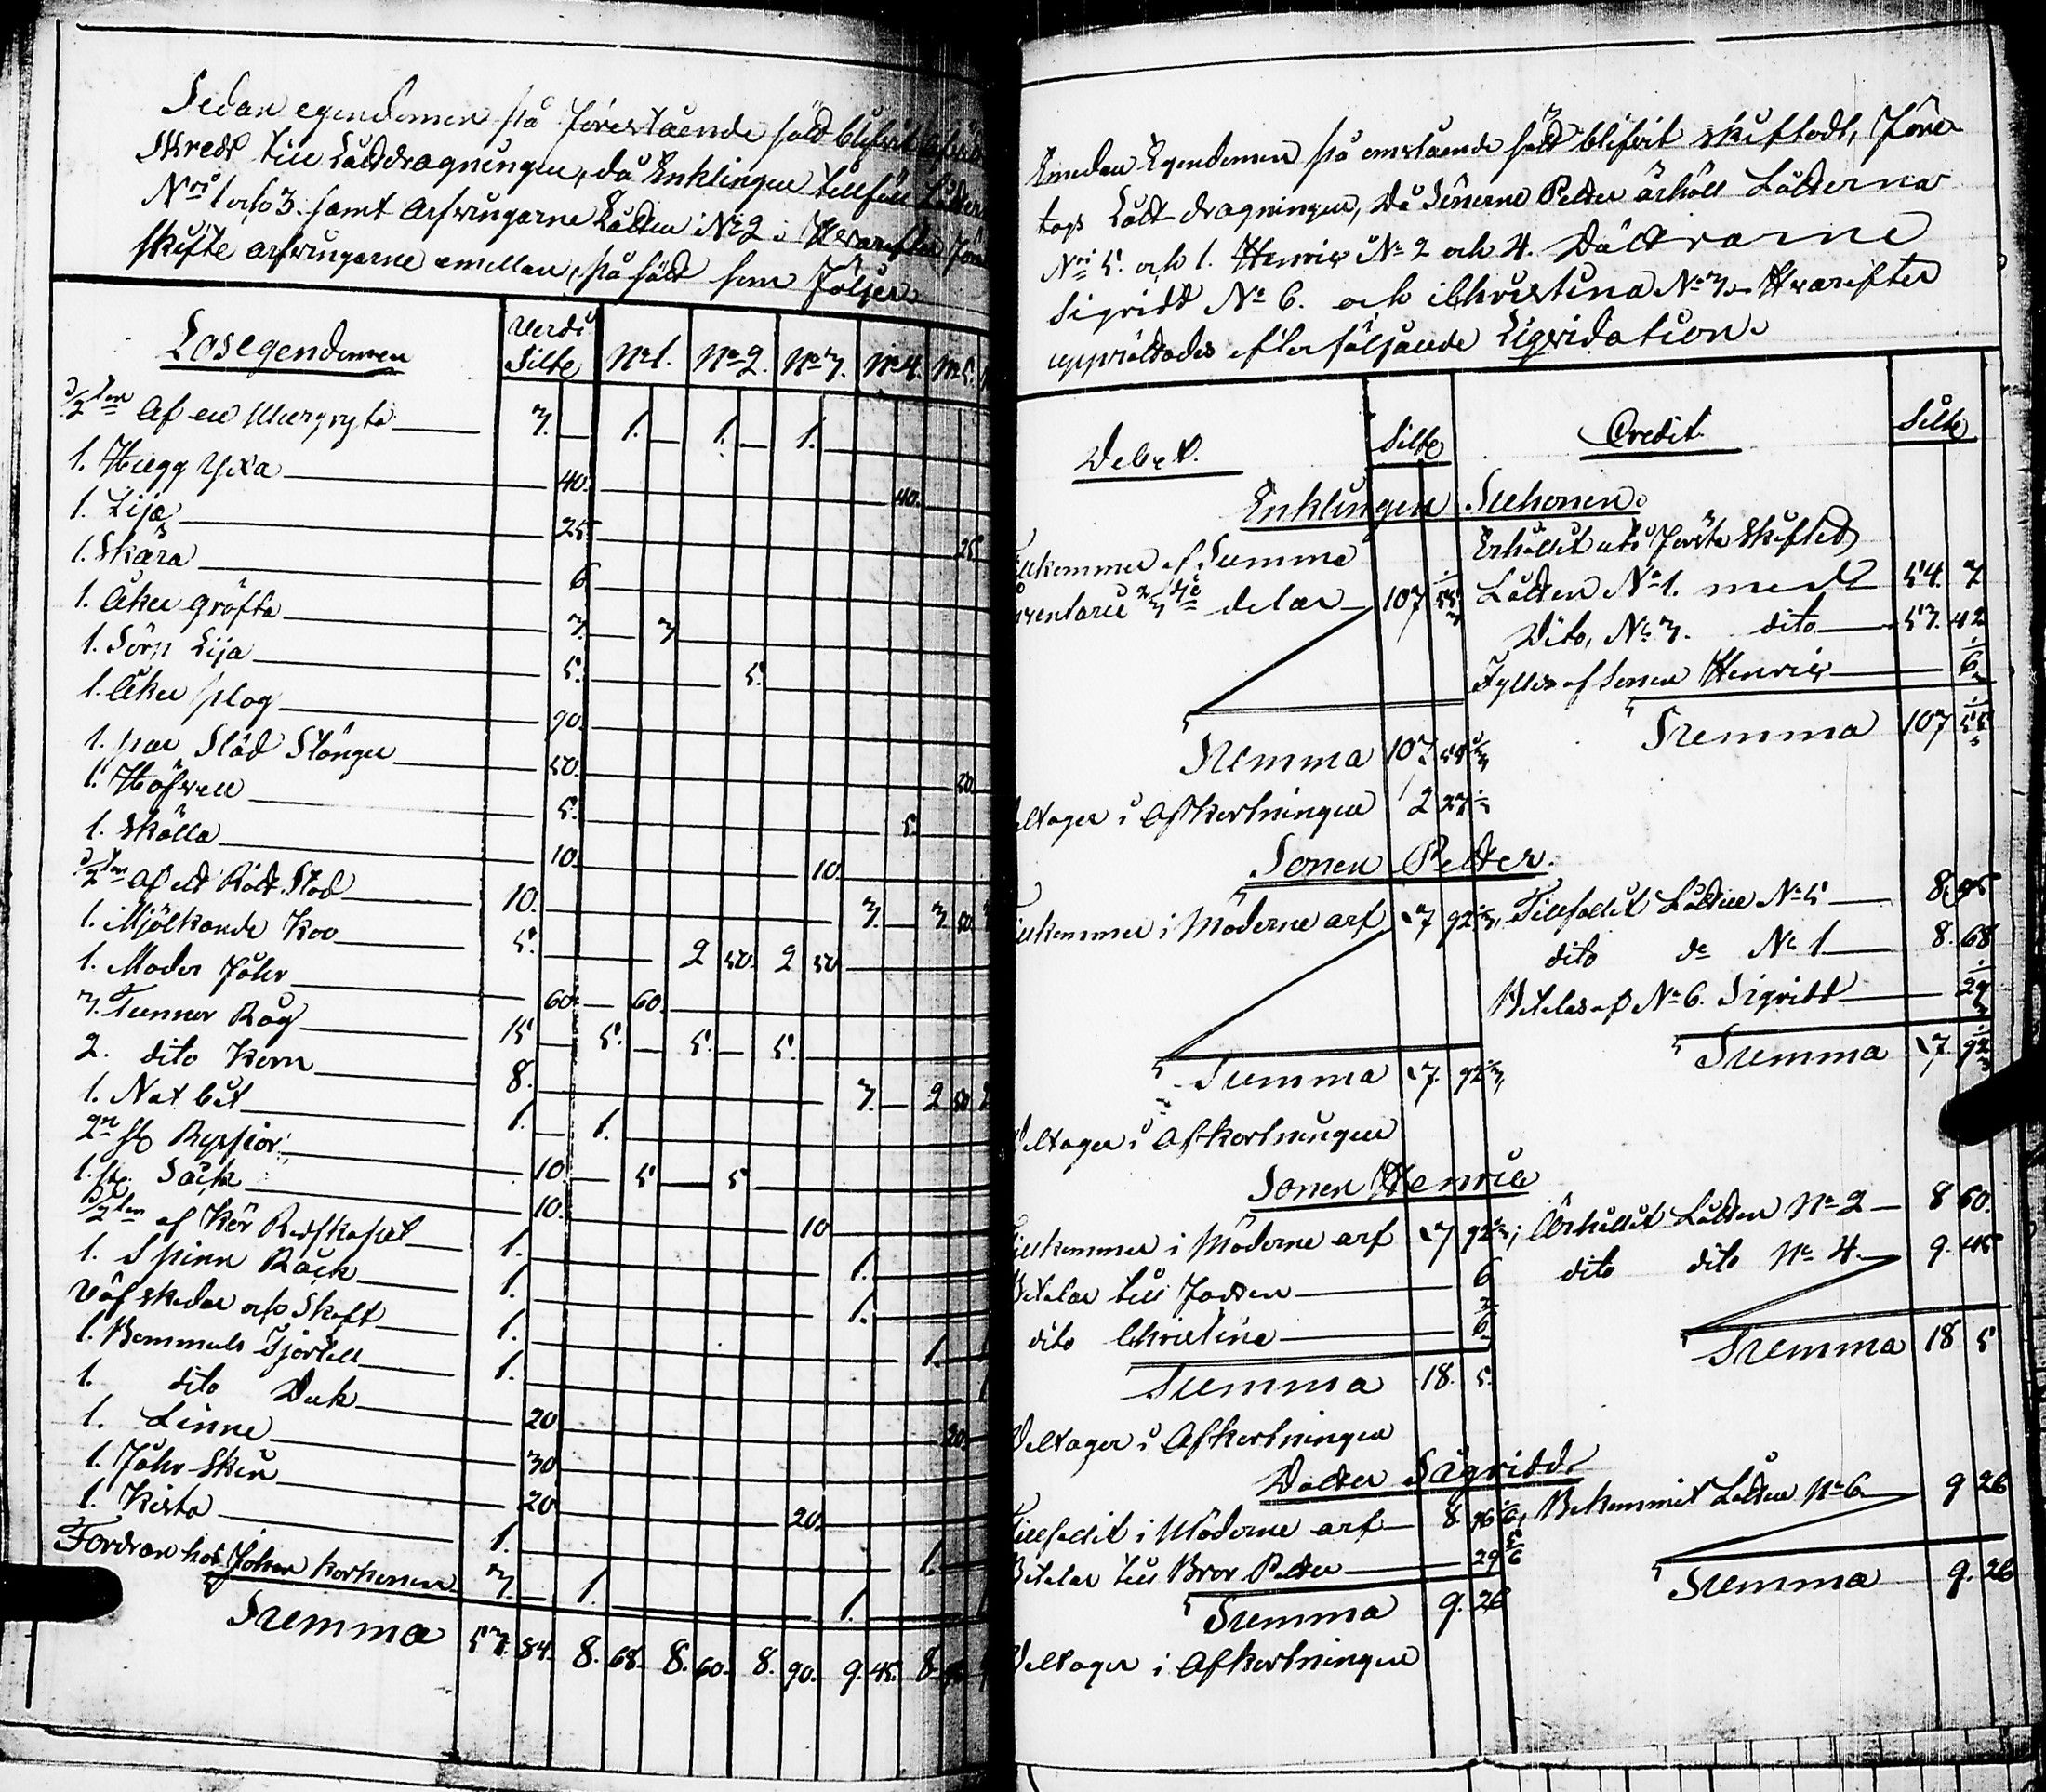 Sedan egendomen på förestående sätt blifvit
Skreds till Låttdragningen, då Enklingen tillföll Lotten
Nris 1 och 3. samt Arfvingarne Lotten No 2. Hvarefter
skifte arfvingarne emellan, på sätt som följer
Lösegendomen
Verde Silfr No 1. No 2. No 3. No 4. No 5.
1/2ten Af en Murgryta 3. 1. 1. 1.
1. Hugg Yxa 40. 40.
1. Lija 25 25
1. Skära 6
1. Åker gräfta 3. 3
1. Törn Lija 5. 5.
1. Åker plog 90.
1. par Släd Stänger 50. 50.
1. Höfvell 5. 5.
1. Skälla 10. 10.
1/2ten af ett Rött Stod 10. 3. 3. 50.
1. Mjölkande Koo 5. 2 50. 2 50
1. Moder Fåhr 60. 60.
3. Tunnor Råg 15 5. 5. 5.
2. dito Korn 8. 3. 2 50
1. Not bit 1. 1.
2ne st Ryssior 10. 5 5
1. st. Säck 10. 10
1/2ten af Kör Redskapet 1. 1.
1. Spinn Råck 1. 1.
Väfskedar och Skaft 1. 1.
1. Bommuls Kjortell 1.
1. dito Duk 20 20
1. Linne 30
1. Fåhr Skin 20 20.
1. Kista 1. 1.
Fordran hos Johan Korhonen 3. 1. 1.
Summa 53. 84. 8. 68. 8. 60. 8. 90. 9. 45. 8.
Emedan Egendomen på omstående sätt blifvit skiftadt, före
togs Lått dragningen, Då Sönerne Petter ärhöll Låtterna
Nris 5. och 1. Henric No 2 och 4. Döttrarne
Sigridt No 6. och Christina No 3. Hvarefter
upprättades efterföljande Liqvidation.
Debet. Silfr Credit. Silfr
Enklingen Suhonen.
Tillkommer af Summa Erhållit uti förste Skiftet
Inventarii 2/3 de delar 107 55 Lotten No 1. medt 54. 7
Dito, No 3. dito 53. 42
Fylles af Sonen Henric 6
Summa 107 55 Summa 107 55
Deltager i Afkortningen 2 23
Sonen Petter.
Tillkommer i Möderne arf 17 92 Tillfallit Lotten No 5 8. 95
dito do No 1 8. 68
Betalas af No 6. Sigridt 29
Summa 17. 92 Summa 17. 92
Deltager i Afkortningen
Sonen Henric
Tillkommer i Möderne arf 17 92 Ärhållit Lotten No 2 8 60.
Betalar till Fadren 6 dito dito No 4. 9. 45
dito Christina 6
Summa 18. 5. Summa 18 5
Deltager i Afkortningen
Dotter Sigridt
Tillfallit i Möderne arf 8. 96 Bekommit Lotten No 6 9 26
Betalar till Bror Petter 29
Summa 9. 26 Summa 9. 26
Deltager i Afkortningen